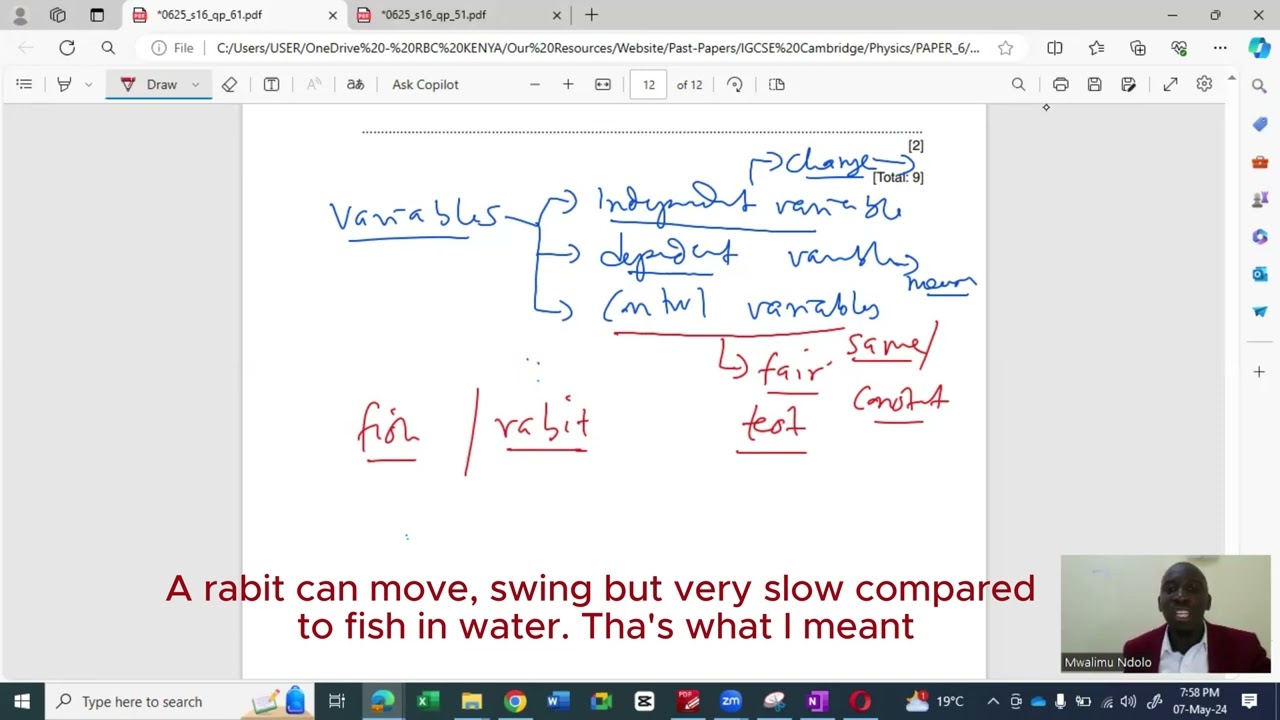 *0625_s16_qp_61.pdf
*0625_s16_qp_51.pdf
File C:/Users/USER/OneDrive%20-%20RBC%20KENYA/Our%20Resources/Website/Past-Papers/IGCSE%20Cambridge/Physics/PAPER_6/...
Draw
Ask Copilot
12 of 12
[2]
change
[Total: 9]
Variables
Independent variable
dependent variable
control variables
same/
fair
constant
fish / rabit
test
A rabit can move, swing but very slow compared
to fish in water. Tha's what I meant
Mwalimu Ndolo
Type here to search
19°C
7:58 PM
07-May-24